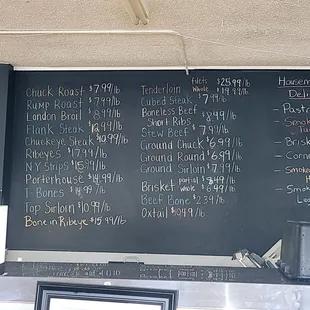 Chuck Roast $7.99/lb
Rump Roast $7.99/lb
London Broil $8.99/lb
Flank Steak /lb
Chuckeye Steak $10.99/lb
Ribeyes $17.99/lb
NY Strips $15.99/lb
Porterhouse $14.99/lb
T-Bones $14.99/lb
Top Sirloin $10.99/lb
Bone in Ribeye $15.99/lb
Tenderloin filets $25.99/lb
whole $19.99/lb
Cubed Steak $7.99/lb
Boneless Beef
Short Ribs $8.99/lb
Stew Beef $7.99/lb
Ground Chuck $6.99/lb
Ground Round $6.99/lb
Ground Sirloin $7.99/lb
Brisket partial /lb
whole $6.99/lb
Beef Bone $2.39/lb
Oxtail /lb
Housem
Deli
- Pastr
- Smok
- Brisk
- Corn
- Smok
- Smok